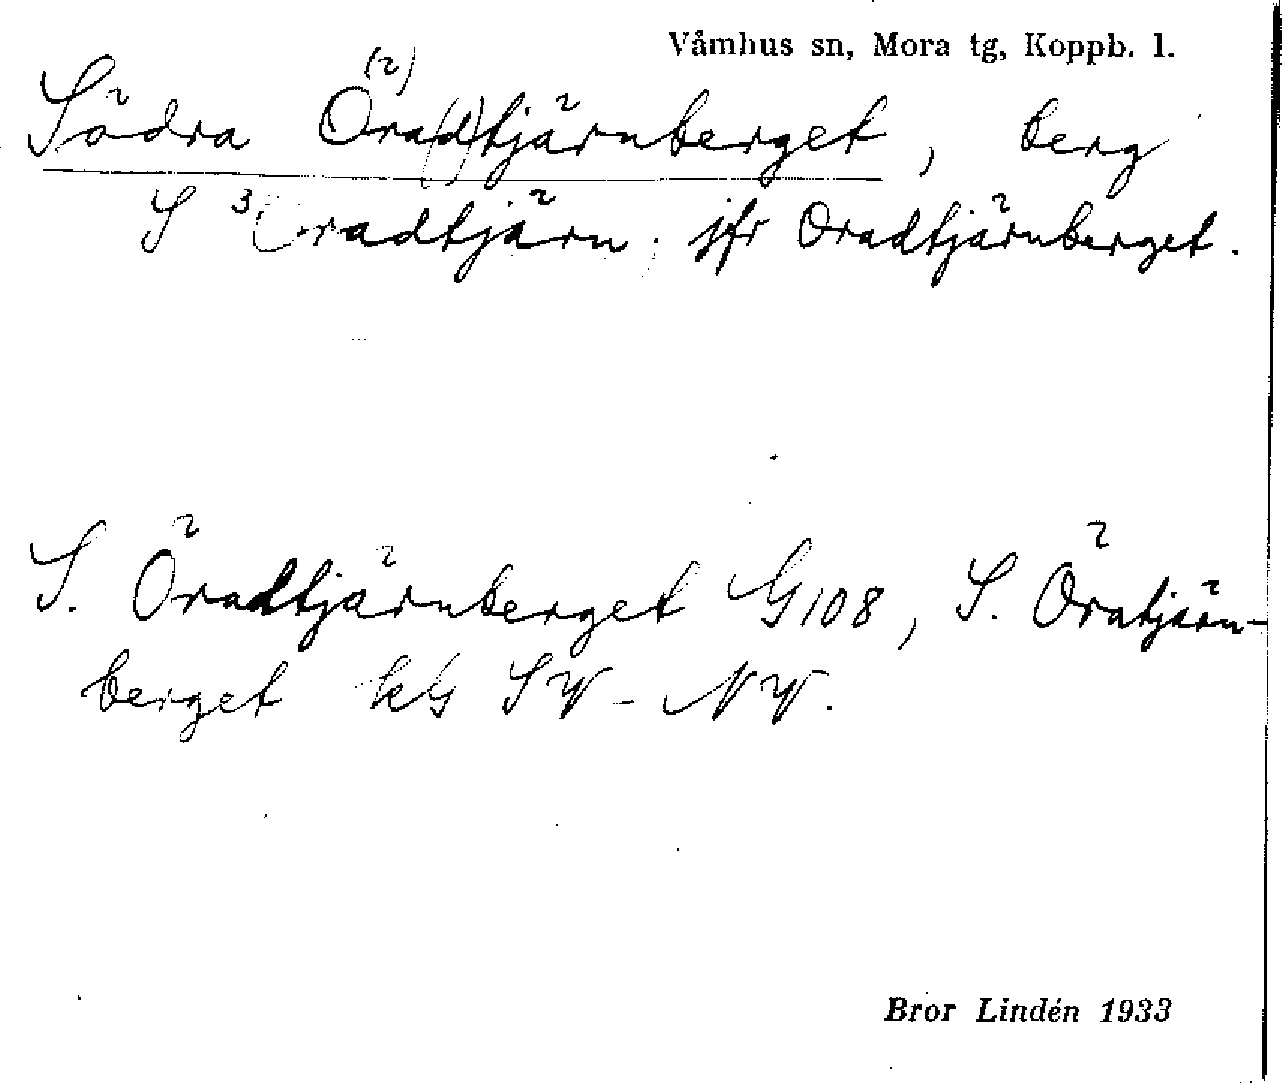 Våmhus sn, Mora tg, Koppb. l.
Södra Öra(d)tjärnberget, berg
S Oradtjärn; jfr Oradtjärnberget.
S. Öradtjärnberget G108, S. Öratjärn-
berget kG SV - NV.
Bror Lindén 1933